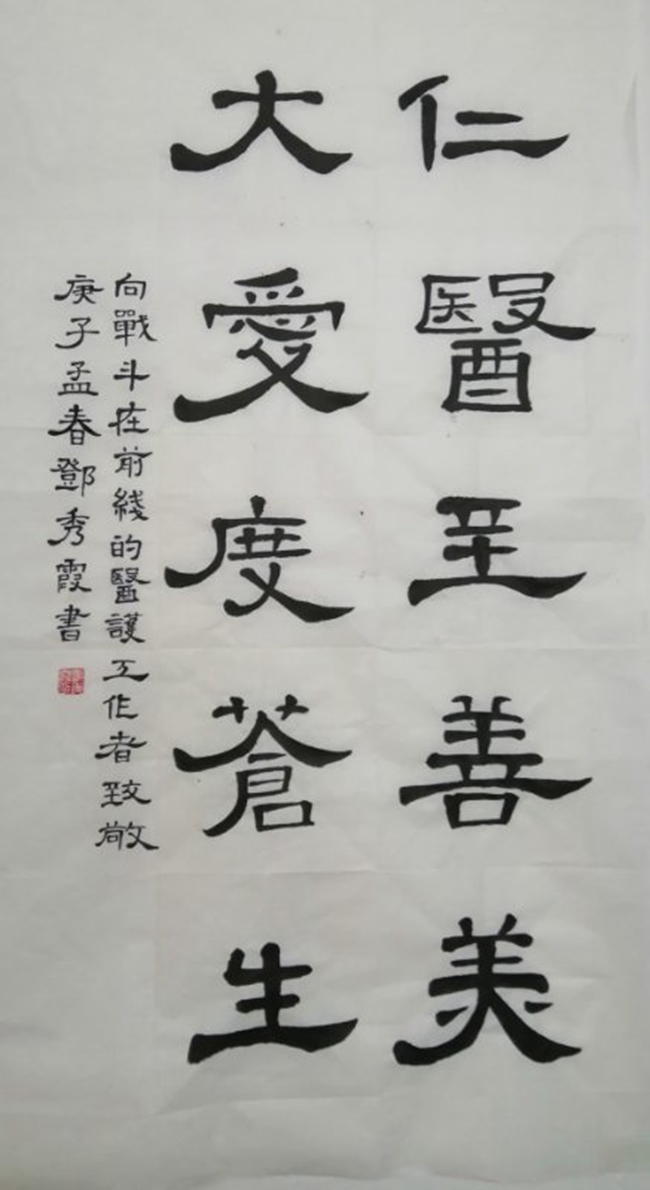 仁醫至善美
大愛度蒼生
向戰斗在前綫的醫護工作者致敬
庚子孟春鄧秀霞書